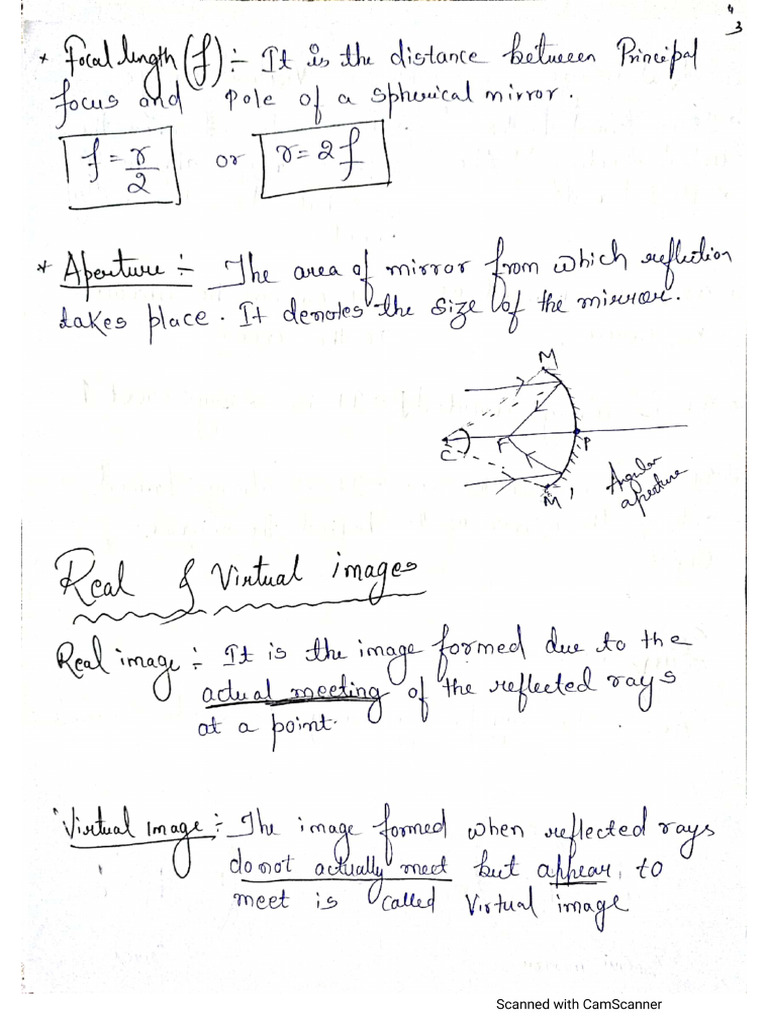 4
3
* Focal length (f) ÷ It is the distance between Principal
focus and pole of a spherical mirror.
f = r/2 or r = 2f
* Aperture ÷ The area of mirror from which reflection
takes place. It denotes the size of the mirror.
M
C F P
M'
Angular
aperture
Real & Virtual images
Real image ÷ It is the image formed due to the
actual meeting of the reflected rays
at a point.
Virtual Image ÷ The image formed when reflected rays
do not actually meet but appear to
meet is called Virtual image
Scanned with CamScanner